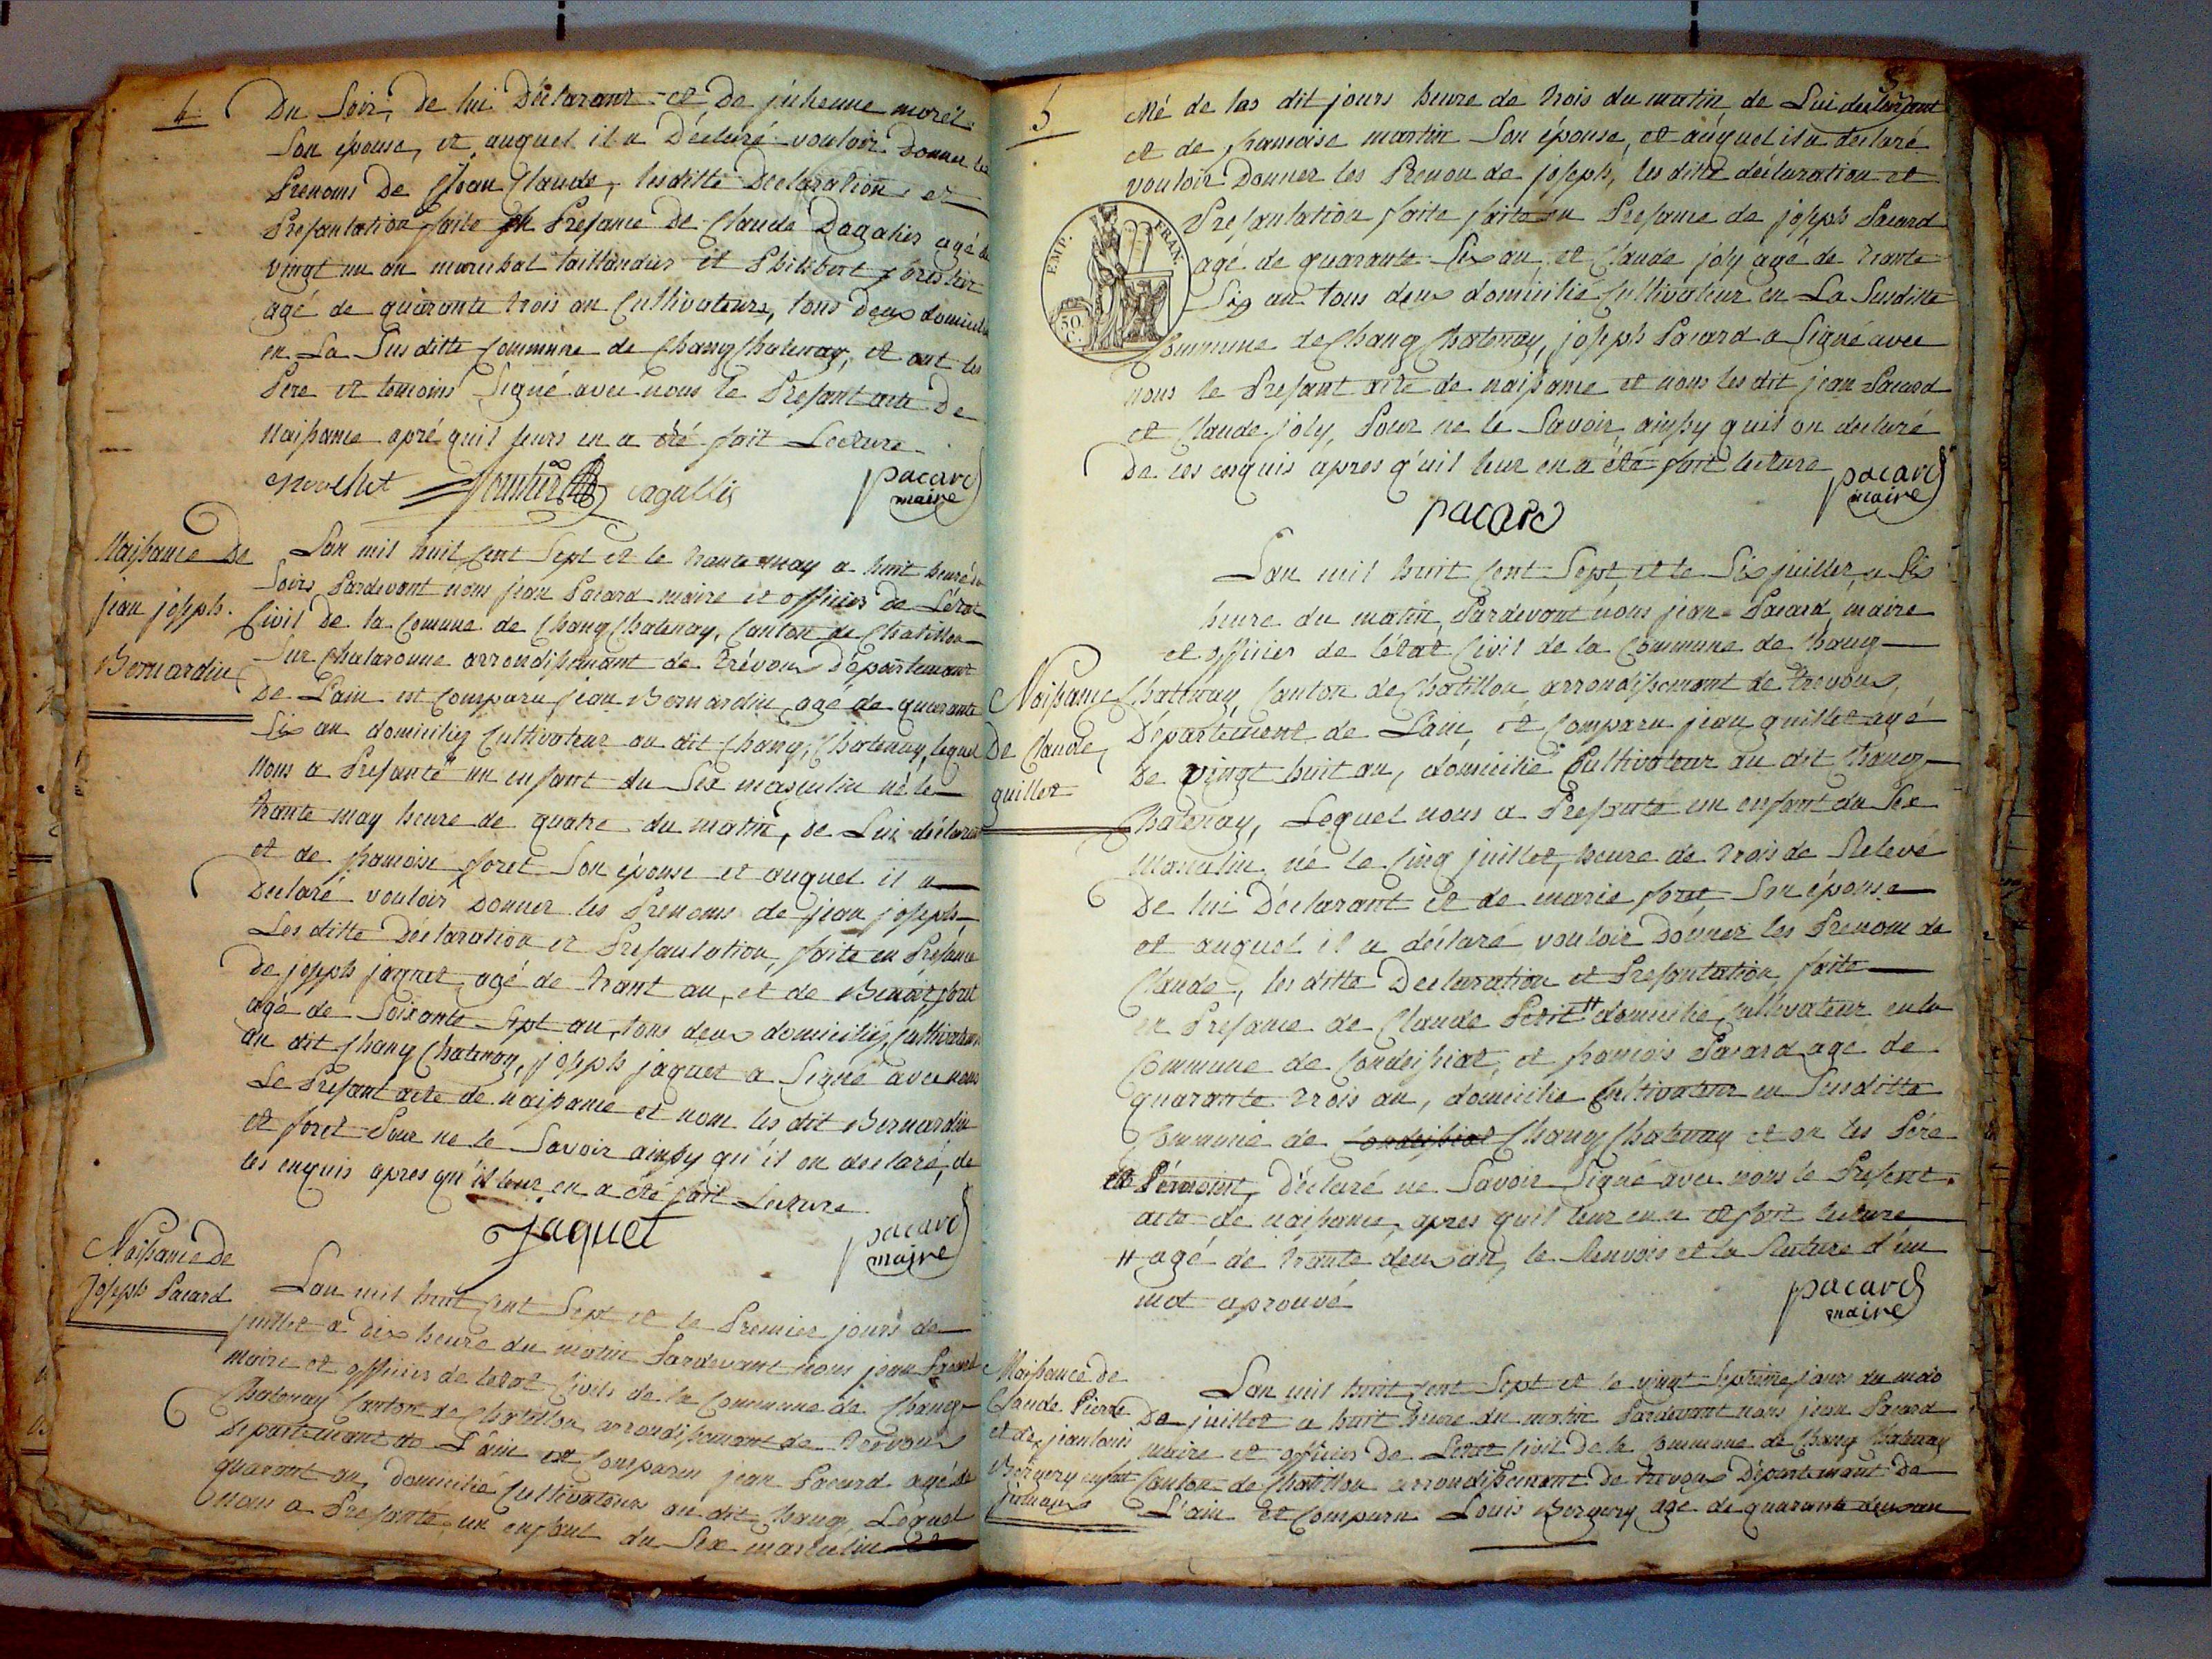 4
Du Soir, de lui Déclarant et De juhenne morel
Son épouse, et auquel il a Déclaré vouloir Donner les
Prenoms De Jean Claude, lesditte Declaration et
Présantation faite en Présance De Claude Dagalier agé de
vingt un an maréchal taillandier et Philibert
agé de quarante trois an Cultivateurs, tous deux domicilié
en La Susditte Commune de Chang Chatenay, et ont les
Pere et temoins Signé avec nous le Présant acte De
Naissance apré quil leurs en a été fait Lecture
pacard
maire
Naissance De
jean joseph
Bernardin
Lan mil huit Cent Sept et le trante may a huit heure du
Soir, Pardevant nous jean Pacard maire et officier de L'état
Civil De la Comune de Chang Chatenay, Canton de Chatillon
Sur Chalaronne arrondissemant de trévoux Départemant
De L'ain est Comparu jean Bernardin, agé de quarante
Six an domiciliez Cultivateur au dit Chang Chatenay, lequel
Nous a Présanté un enfant du Sex masculin né le
trante may heure de quatre du matin, de Lui déclarant
et de francoise foret Son épouse et auquel il a
Déclaré vouloir Donner les Prenoms de jean joseph
Les ditte Déclaration et Présantation, faite en Présance
De joseph jaquet, agé de trant an, et de Benoit foret
agé de Soixante Sept an, tous deux domiciliez Cultivateurs
au dit Chang Chatenay, joseph jaquet a Signé avec nous
Le Présant acte de naissance et nom les dit Bernardin
et foret Pour ne le Savoir ainsy qu'il on declaré, de
les enquis apres qu'il leur en a été fait Lecture
Jaquet
pacard
maire
Naissance de
Joseph Pacard
Lan mil huit Cent Sept et le Premier jours de
juillet a dix heure du matin Pardevant nous jean Pacard
Maire et officier de letat Civils de la Commune de Chang
Chatenay Canton de Chatillon, arrondissemant de trevoux
Departemant de L'ain est Comparu jean Pacard agé de
quarant an domicilié Cultivateur au dit Chang, Lequel
Nous a Présanté un enfant du Sex masculin
5
Né de las dit jours heure de trois du matin, de Lui declarant
et de francoise martin Son épouse, et auquel il a declaré
vouloir Donner les Prenon de joseph, les ditte déclaration et
Présantation faite faite en Présance de joseph Pacard
EMP. FRAN.
50 C.
agé de quarante Six an, et Claude joly agé de trante
Six an tous deux domicilié Cultivateur en La Susditte
Commune de Chang Chatenay, joseph Pacard a Signé avec
nous le Présant acte de naissance et nons les dit jean Pacard
et Claude joly, Pour ne le Savoir, ainsy quil on declaré
De ces enquis apres q'uil leur en a été fait lecture
pacard
maire
pacard
Naissance
De Claude
guillet
Lan mil huit Cent Sept et le Six juillet, a Six
heure du matin Pardevant nous jean Pacard maire
et officier de létat Civil de la Commune de Chang
Chatenay, Canton de Chatillon, arrondissemant de trevoux,
Département de Lain, est Comparu jean guillet agé
De vingt huit an, domicilié Cultivateur au dit Chang
Chatenay, Lequel nous a Présanté un enfant du Sex
Masculin né le Cinq juillet, heure de trois de Relevé
De lui Déclarant et de marie foret Son épouse
et auquel il a déclaré vouloir Donner les Prenom de
Claude, les ditte Declaration et Présantation, faite
en Présance de Claude Petit # domicilié Cultivateur en la
Commune de Condeissiat, et francois Pacard agé de
quarante trois an, domicilié Cultivateur en Susditte
Commune de Condeissiat Chang Chatenay et on les Pére
et témoins, déclaré ne Savoir Signé avec nous le Présent
acte de naissance, apres quil leur en a été fait lecture
# agé de trante deux an, le Renvois et la Rature d'un
mot aprouvé
pacard
maire
Naissance de
Claude Pierre
et de jean louis
Bergery enfant
jumeaux
Lan mil huit Cent Sept et le vingt Septième jours du mois
De juillet a huit heure du matin Pardevant nous jean Pacard
maire et officier De Letat Civil De la Commune de Chang Chatenay
Canton de Chatillon arrondissemant De trevoux Départemant De
L'ain est Comparu Louis Bergery agé de quarante deux an